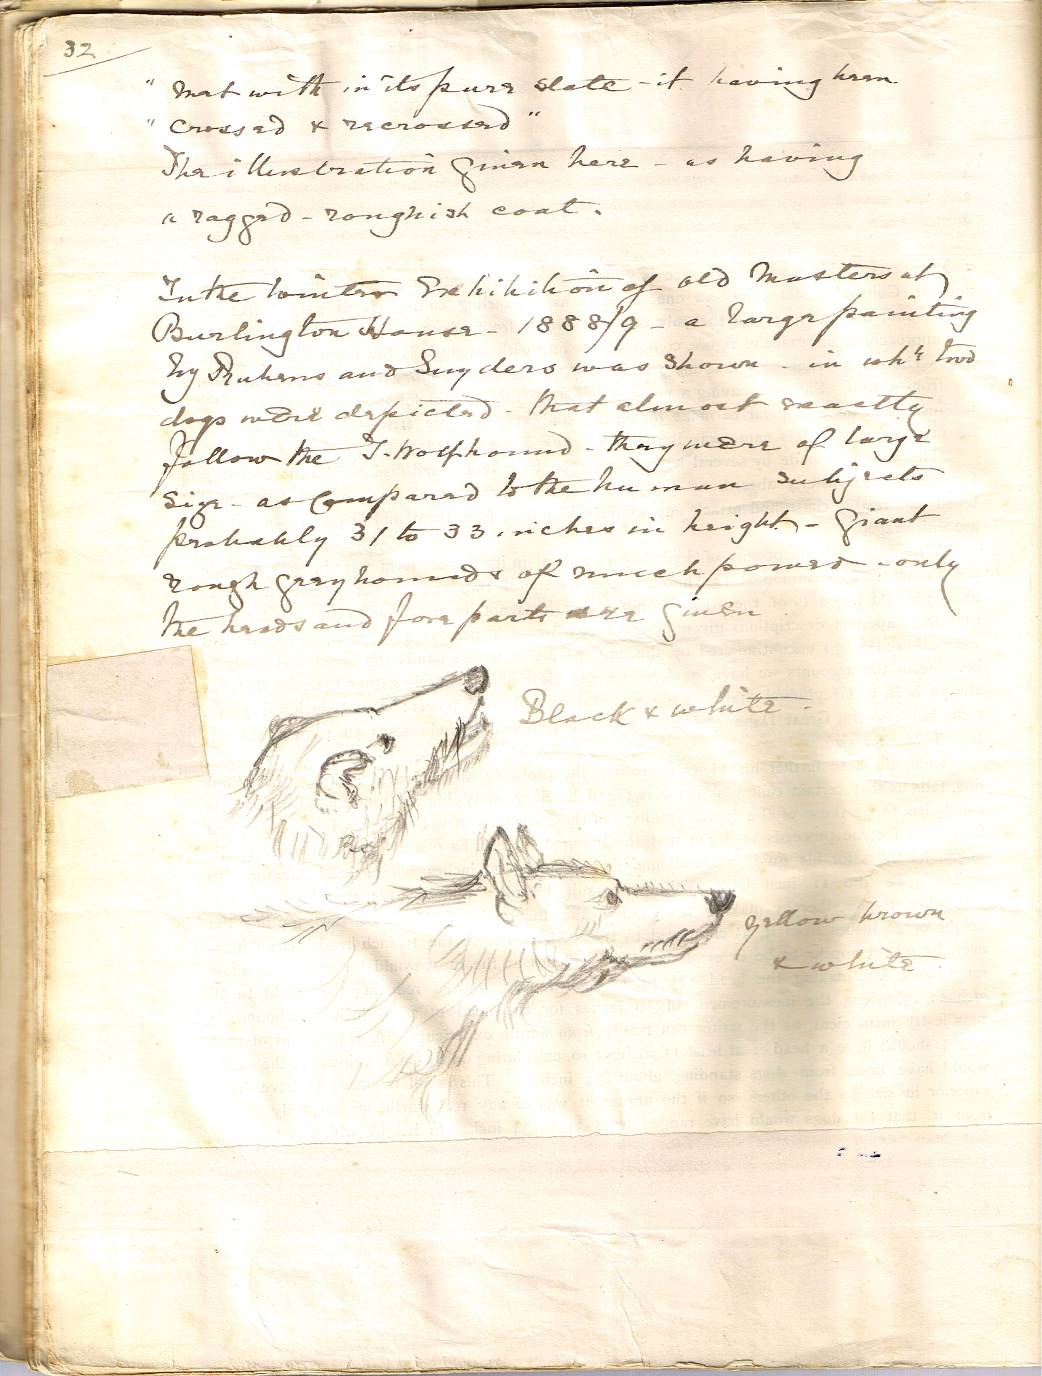 32
" met with in its pure state - it having been
" crossed & recrossed "
The illustration given here - as having
a ragged - roughish coat.
In the Winter Exhibition of old Masters at
Burlington House - 1888/9 - a large painting
by Rubens and Snyders was shown - in whh two
dogs were depicted - that almost exactly
follow the I. Wolfhound - they were of large
size - as compared to the human subjects
probably 31 to 33 inches in height - Giant
rough greyhounds of much power - only
the heads and fore parts were given
Black & white -
yellow brown
& white